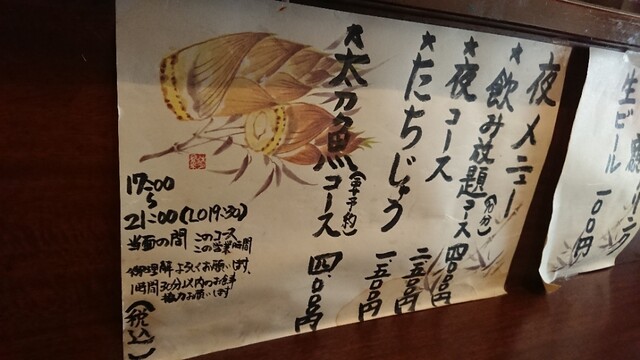 夜メニュー
★飲み放題コース(90分)四000円
★夜コース 二五00円
★たちじゅう 一五00円
★太刀魚コース(要予約)四000円
17:00
〜
21:00(LO19:30)
当面の間 このコース
この営業時間
御理解よろしくお願いします。
1時間30分以内のお食事
協力お願いします
(税込)
生ビール 一00円